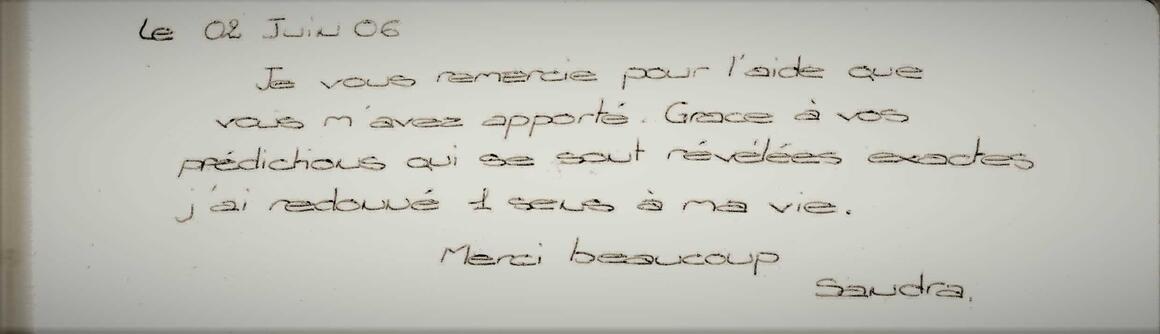 Le 02 Juin 06
Je vous remercie pour l'aide que
vous m'avez apporté. Grace à vos
prédictions qui se sont révélées exactes
j'ai redonné 1 sens à ma vie.
Merci beaucoup
Sandra.